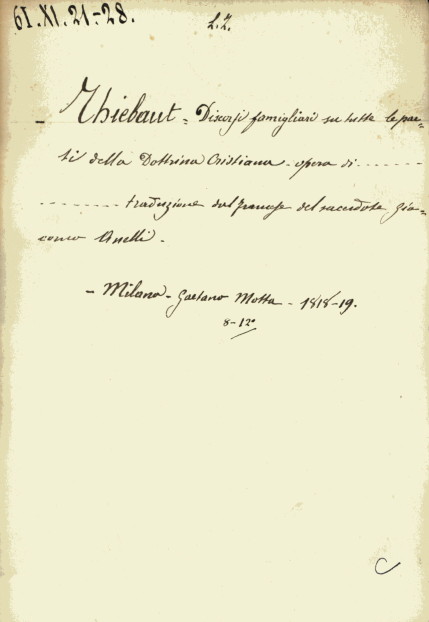 61.XI.21-28.
L.Z.
- Thiebaut = Discorsi famigliari su tutte le par=
ti della Dottrina Cristiana - opera di - - - - - - -
- - - - - - - - - traduzione dal francese del sacerdote Gia=
como Anelli -
- Milano - Gaetano Motta - 1818-19.
8-12º
C